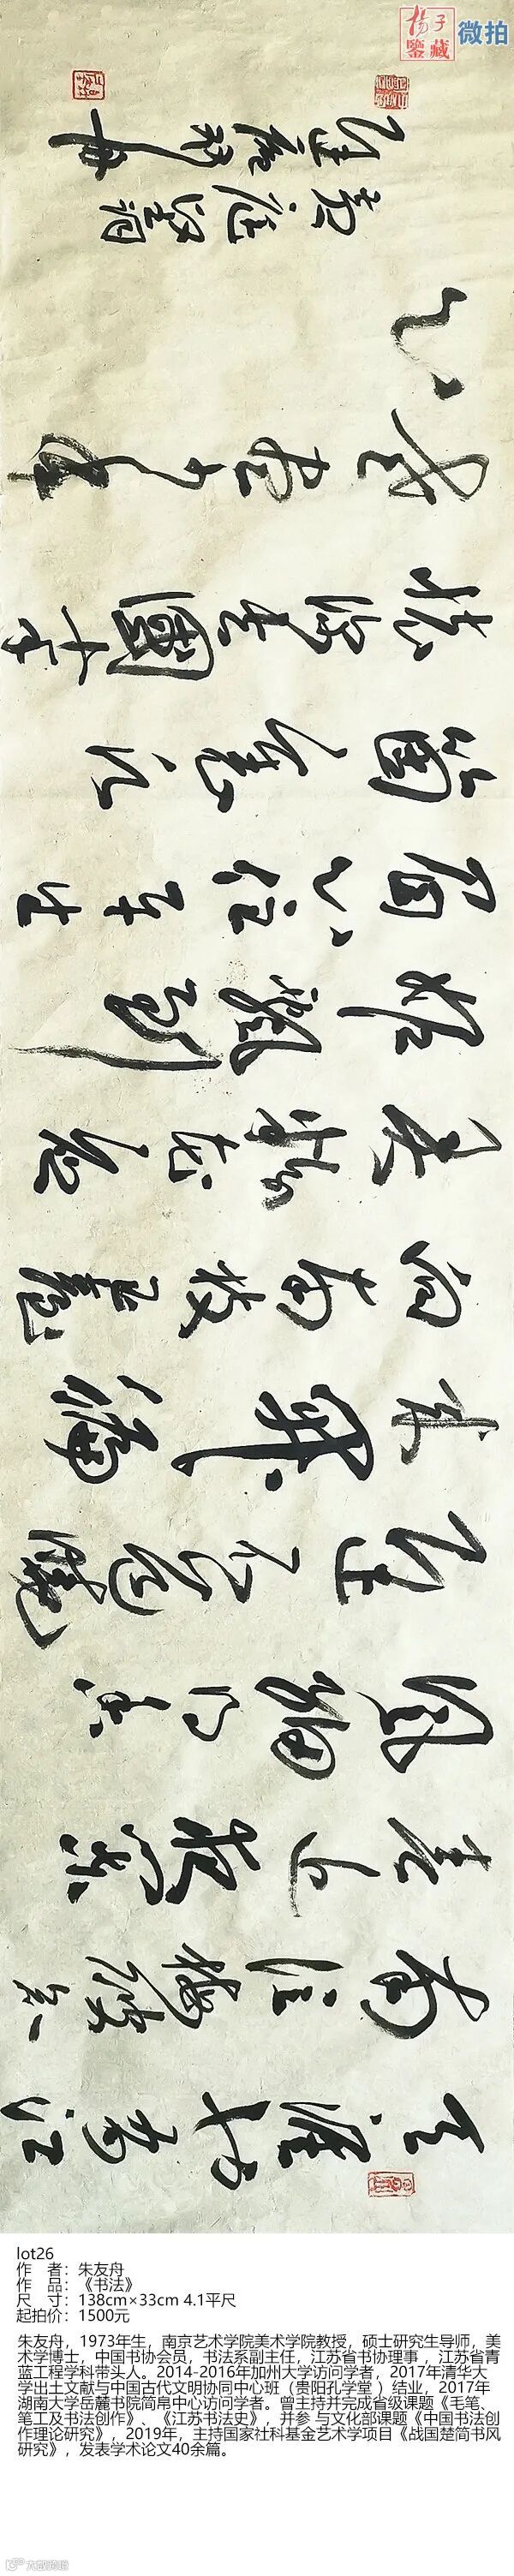 扬子
鉴藏
微拍
天涯也有江
南信梅破知
春近夜闌
風細得香
遲不道曉
來開遍
向南枝玉臺
弄粉花應
妒飄到
眉心住平生
箇裏願
杯深去國十
年老盡少年
心
黄庭堅詞
lot26
作 者：朱友舟
作 品：《书法》
尺 寸：138cm×33cm 4.1平尺
起拍价：1500元
朱友舟，1973年生，南京艺术学院美术学院教授，硕士研究生导师，美
术学博士，中国书协会员，书法系副主任，江苏省书协理事 ，江苏省青
蓝工程学科带头人。2014-2016年加州大学访问学者，2017年清华大
学出土文献与中国古代文明协同中心班（贵阳孔学堂 ）结业，2017年
湖南大学岳麓书院简帛中心访问学者。曾主持并完成省级课题《毛笔、
笔工及书法创作》、《江苏书法史》，并参 与文化部课题《中国书法创
作理论研究》，2019年，主持国家社科基金艺术学项目《战国楚简书风
研究》，发表学术论文40余篇。